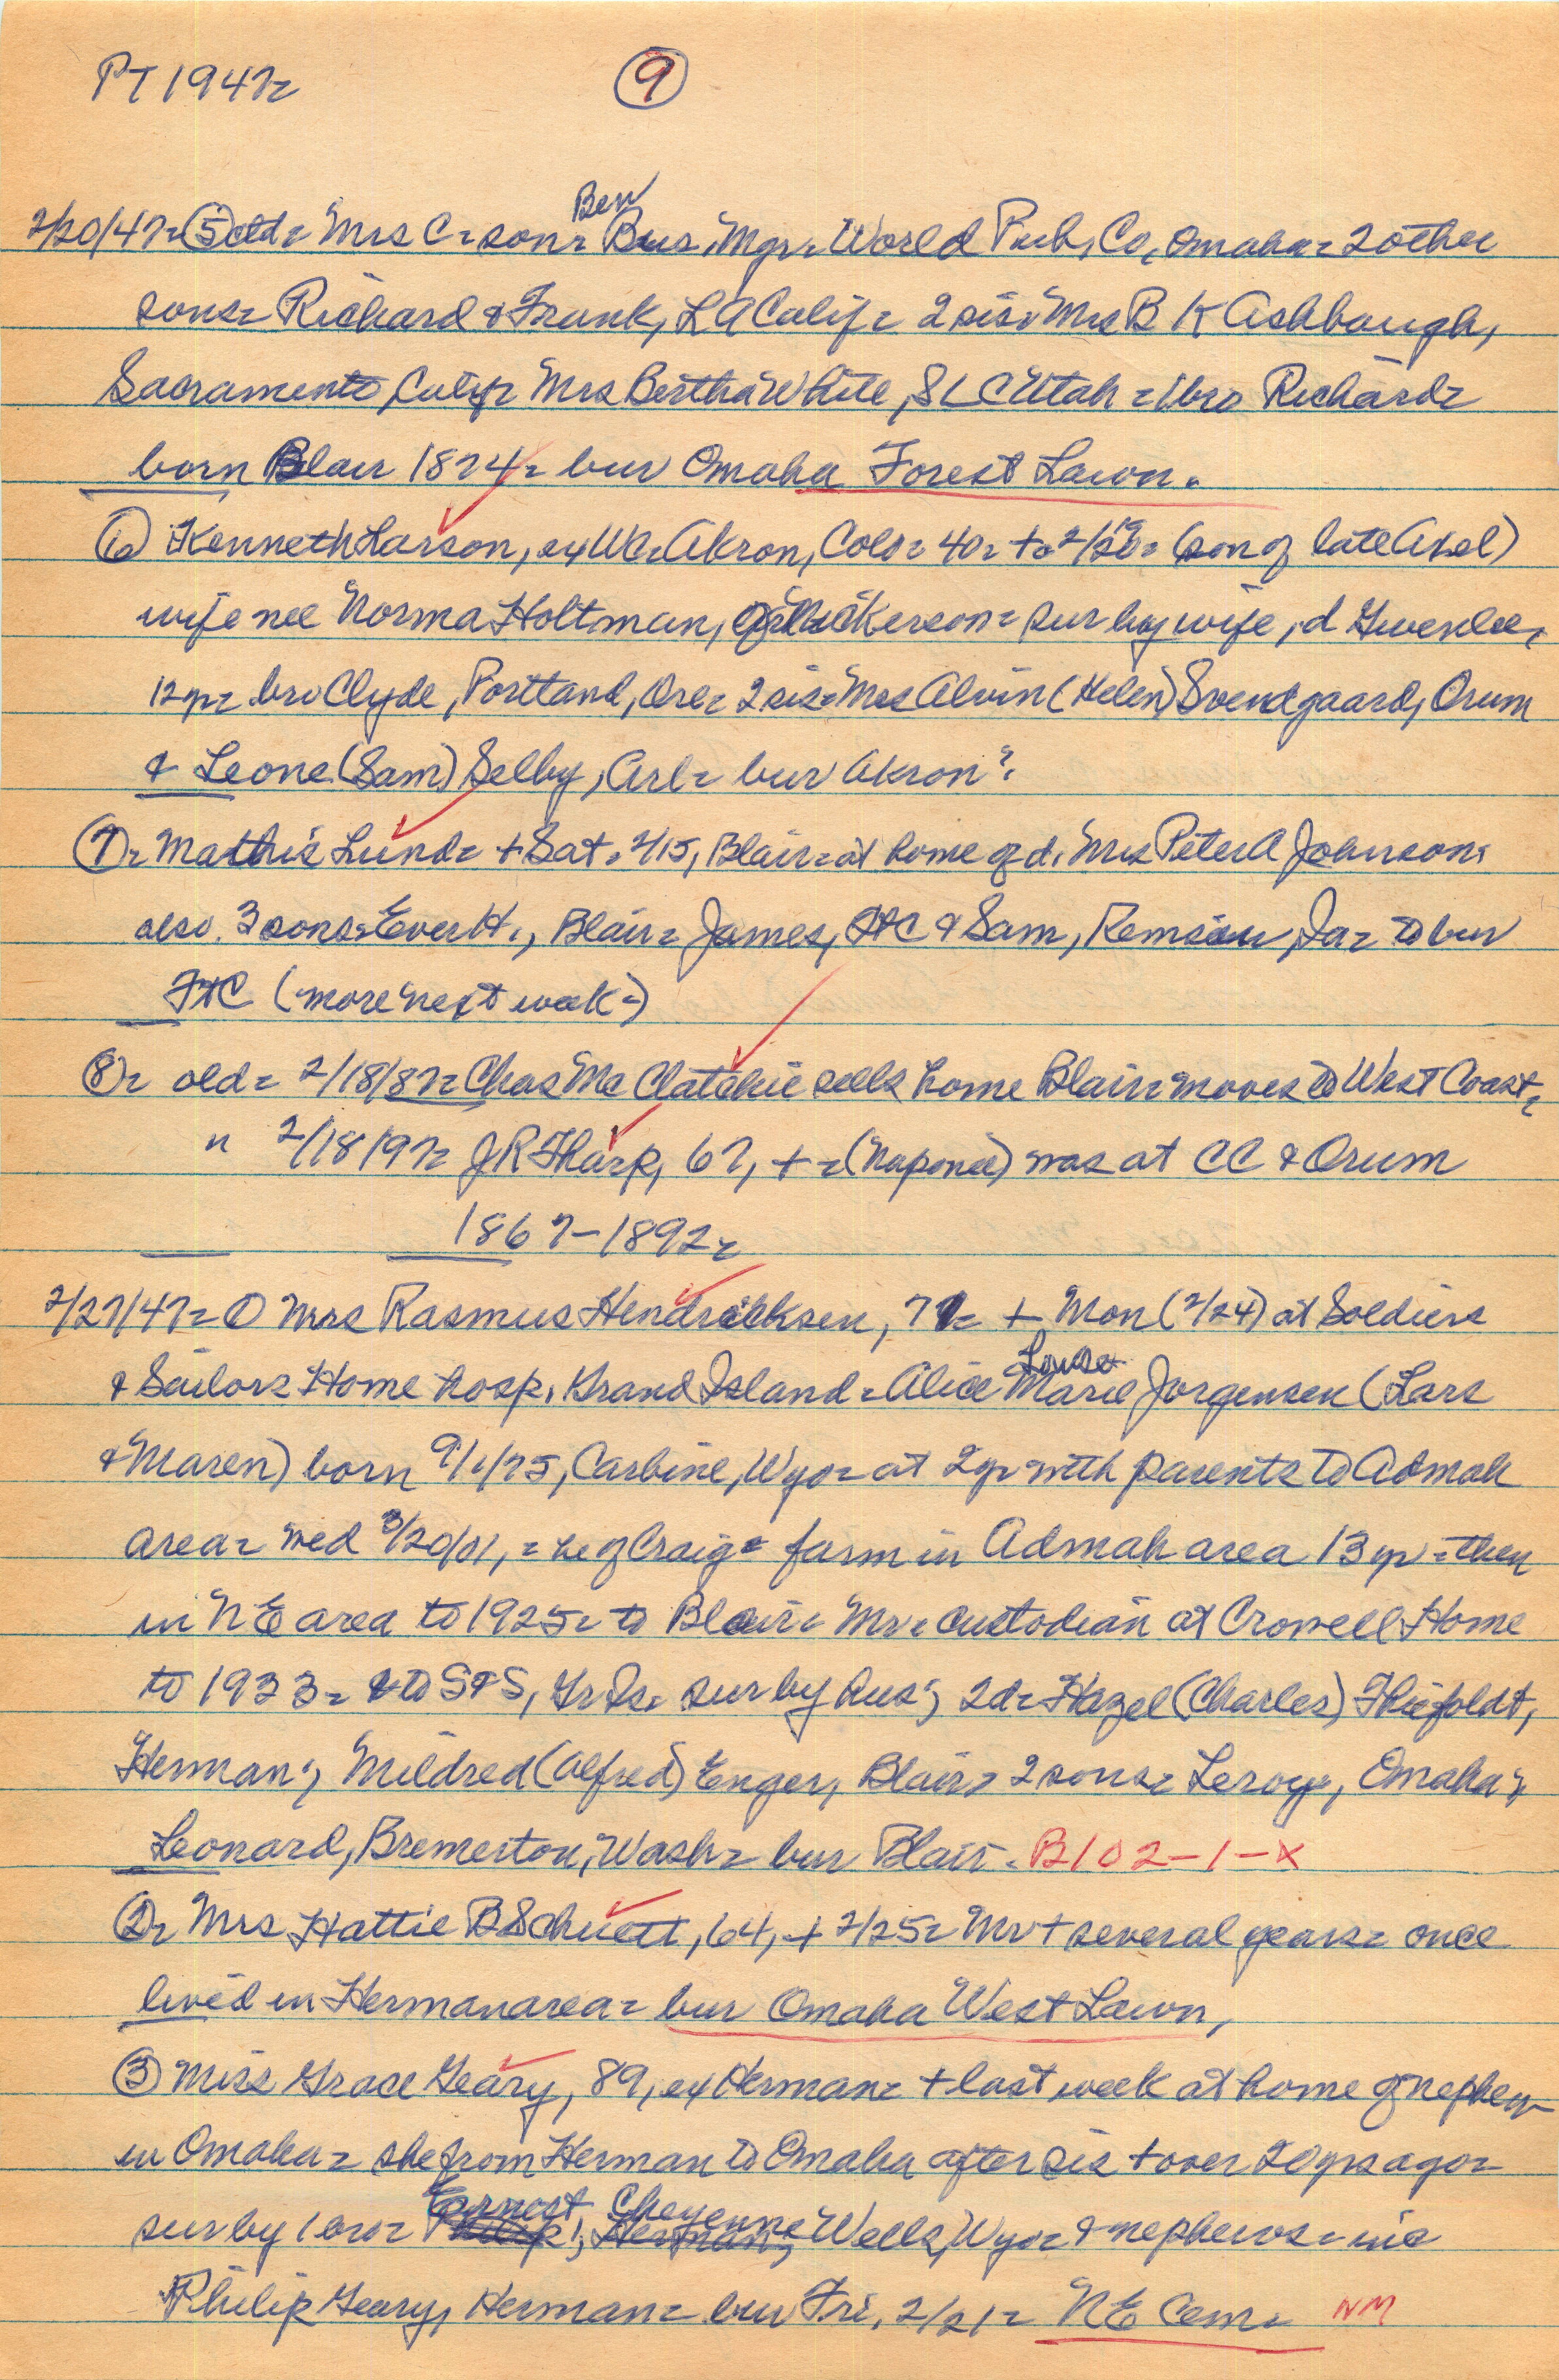 PT 1947=
9
Ben
2/20/47= 5 ctd= Mrs C= son= Bus. Mgr= World Pub, Co, Omaha= 2 other
sons= Richard & Frank, LA Calif= 2 sis= Mrs B K Ashbaugh,
Sacramento, Calif= Mrs Bertha White, SLC Utah = 1 bro Richard=
born Blair 1874= bur Omaha Forest Lawn.
6 Kenneth Larson, ex WC= Akron, Colo= 40= + 2/19= (son of late Axel)
wife nee Norma Holtman, = sur by wife, d Gwenlee,
12 yr= bro Clyde, Portland, Ore= 2 sis= Mrs Alvin (Helen) Svendgaard, Orum
& Leone (Sam) Selby, Arl= bur Akron?
7= Mathis Lund= + Sat. 2/15, Blair= at home of d. Mrs Peter A Johnson=
also. 3 sons= Evert H., Blair= James, FtC & Sam, Remsen, Ia= to bur
FtC (more next week=)
8= old= 2/18/87= Chas McClatchie sells home Blair= moves to West Coast=
" 2/18/97= JR Tharp, 67, += (Naponee) was at CC & Orum
1867-1892=
2/27/47= 1 Mrs Rasmus Hendricksen, 71= + Mon (2/24) at Soldiers
Louise
& Sailors Home hosp, Grand Island= Alice Marie Jorgensen (Lars
& Maren) born 9/1/75, Carbine, Wyo= at 2 yr with parents to Admah
area= wed 3/20/01, = he of Craig= farm in Admah area 13 yr= then
in NE area to 1925= to Blair= Mr= custodian at Crowell Home
to 1933= & to S&S, Gr Is= sur by hus; 2d= Hazel (Charles) Thiefoldt,
Herman; Mildred (Alfred) Enger, Blair= 2 sons= Leroy, Omaha;
Leonard, Bremerton, Wash= bur Blair. B102-1-X
2= Mrs Hattie B Schuett, 64, + 2/25= Mr + several years= once
lived in Herman area= bur Omaha West Lawn,
3 Miss Grace Geary, 89, ex Herman= + last week at home of nephew
in Omaha= she from Herman to Omaha after sis + over 20 yrs ago=
Ernest, Cheyenne
sur by 1 bro= Philip, Herman; Wells, Wyo= & nephews= inc
Philip Geary, Herman= bur Fri, 2/21= NE Cem= NM